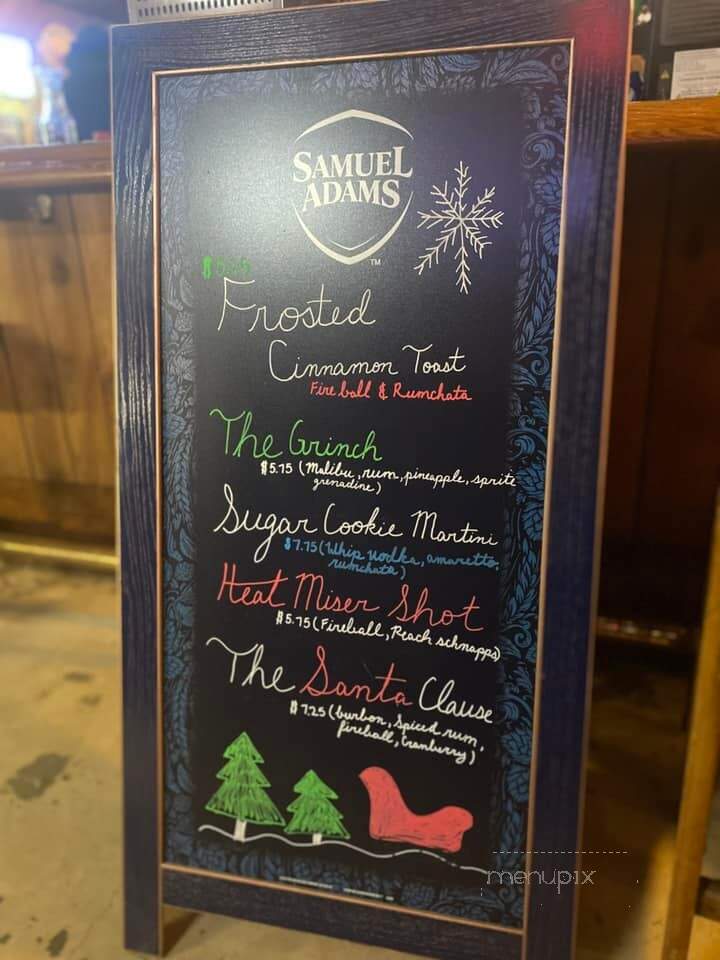 SAMUEL
ADAMS
TM
Frosted
Cinnamon Toast
Fireball & Rumchata
The Grinch
$5.75 (Malibu, rum, pineapple, sprite
grenadine)
Sugar Cookie Martini
$7.75 (Whip vodka, amaretto,
rumchata)
Heat Miser Shot
$5.75 (Fireball, Peach schnapps)
The Santa Clause
$7.25 (burbon, Spiced rum,
fireball, Cranberry)
menupix